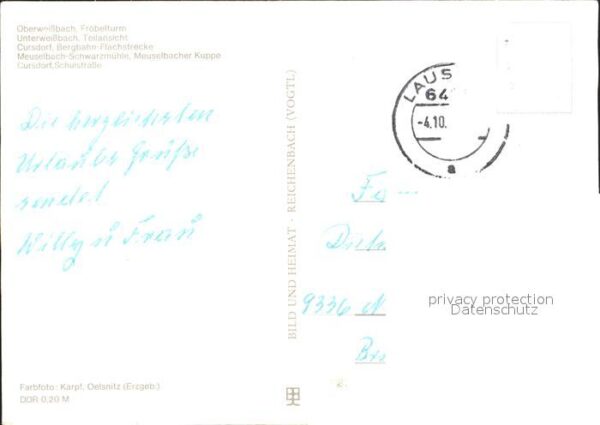 Oberweißbach, Fröbelturm
Unterweißbach, Teilansicht
Cursdorf, Bergbahn-Flachstrecke
Meuselbach-Schwarzmühle, Meuselbacher Kuppe
Cursdorf, Schulstraße
LAUS
64
-4.10.
a
Die herzlichsten
Urlaubs Grüße
sendet
Willy u Frau
BILD UND HEIMAT · REICHENBACH (VOGTL)
Fa
9336
privacy protection
Datenschutz
Farbfoto: Karpf, Oelsnitz (Erzgeb.)
DDR 0,20 M